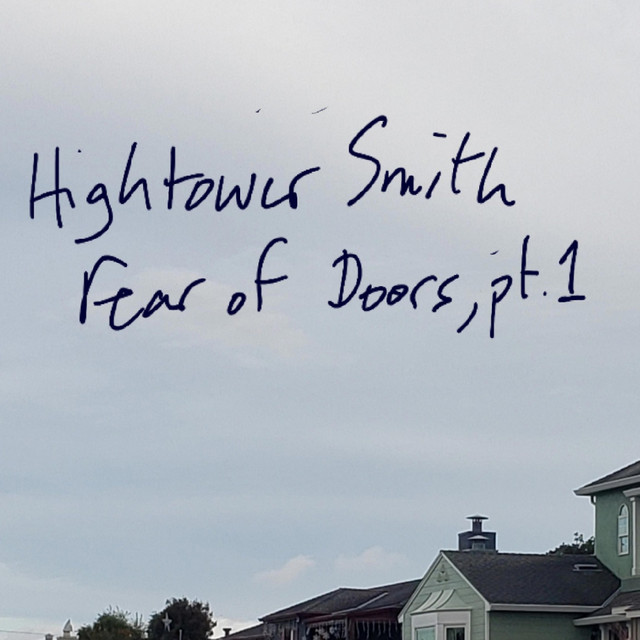 Hightower Smith
Fear of Doors, pt. 1